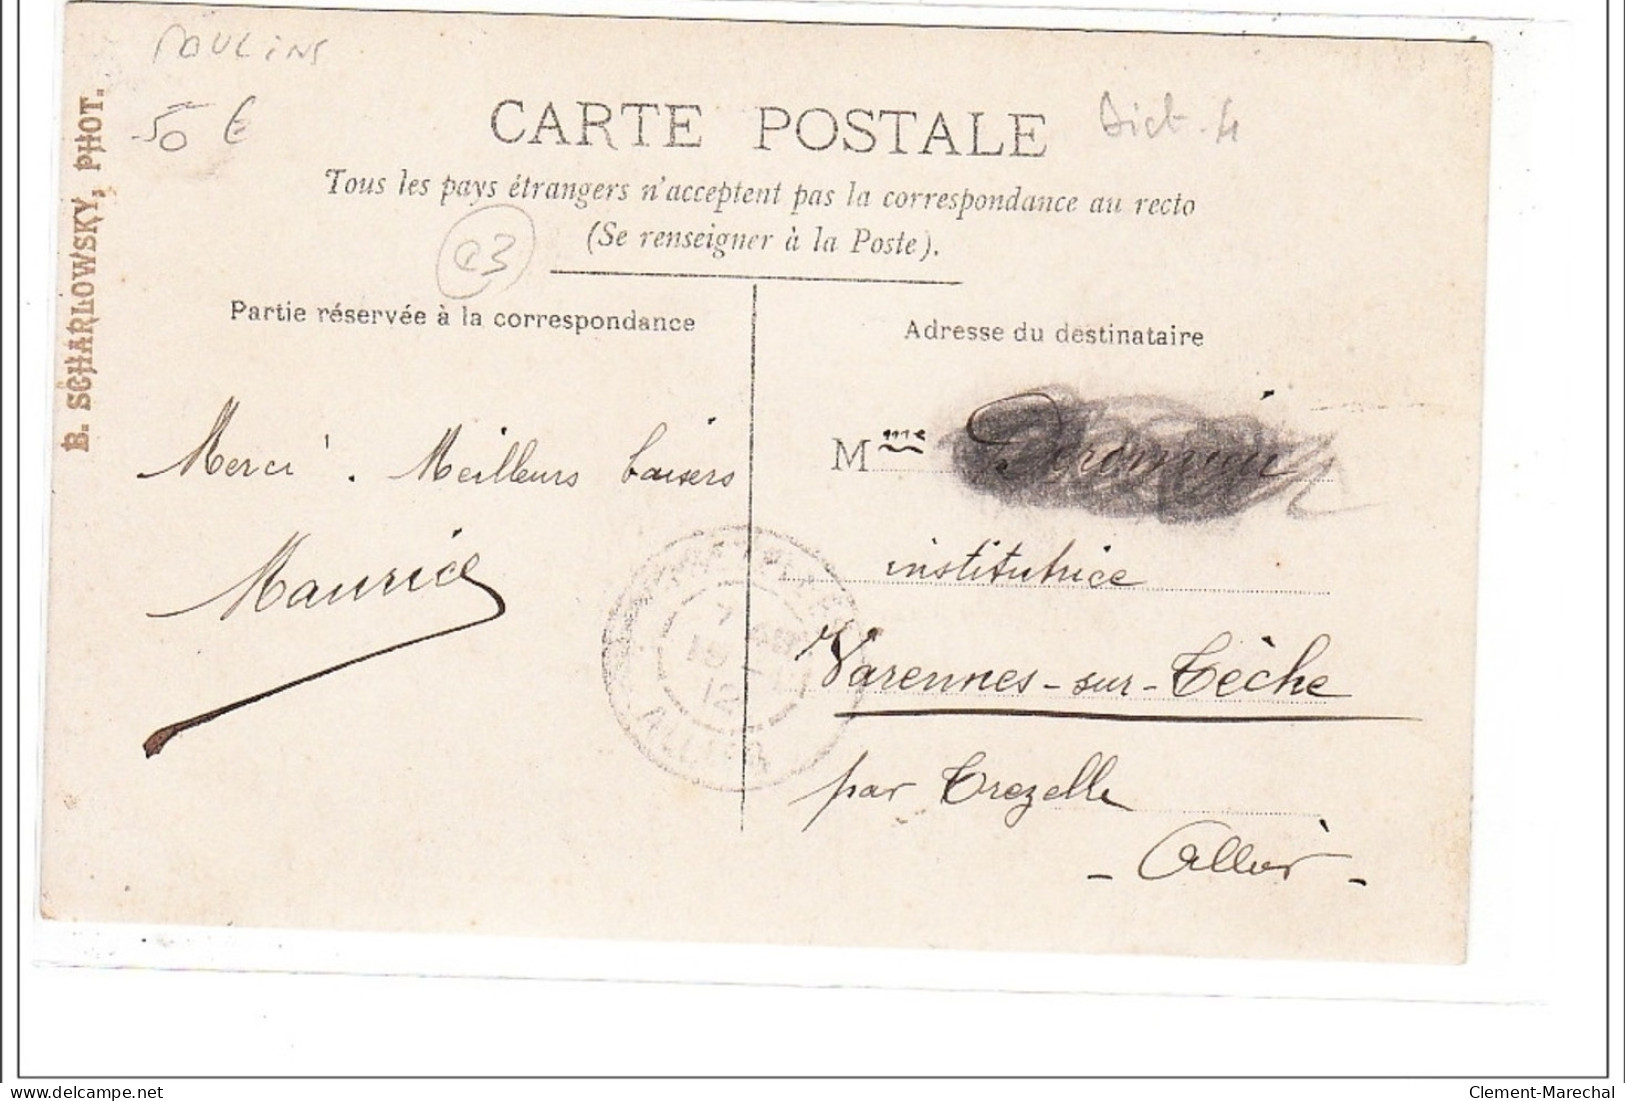 MOULINS
50 €
B. SCHARLOWSKY, PHOT.
CARTE POSTALE
Dict. 4
Tous les pays étrangers n'acceptent pas la correspondance au recto
(Se renseigner à la Poste).
03
Partie réservée à la correspondance
Merci ! . Meilleurs baisers
Maurice
Adresse du destinataire
Mme
institutrice
Varennes-sur-Tèche
par Trezelle
- Allier -
7
15 - 1
12
ALLIER
Clement-Marechal
delcampe.net